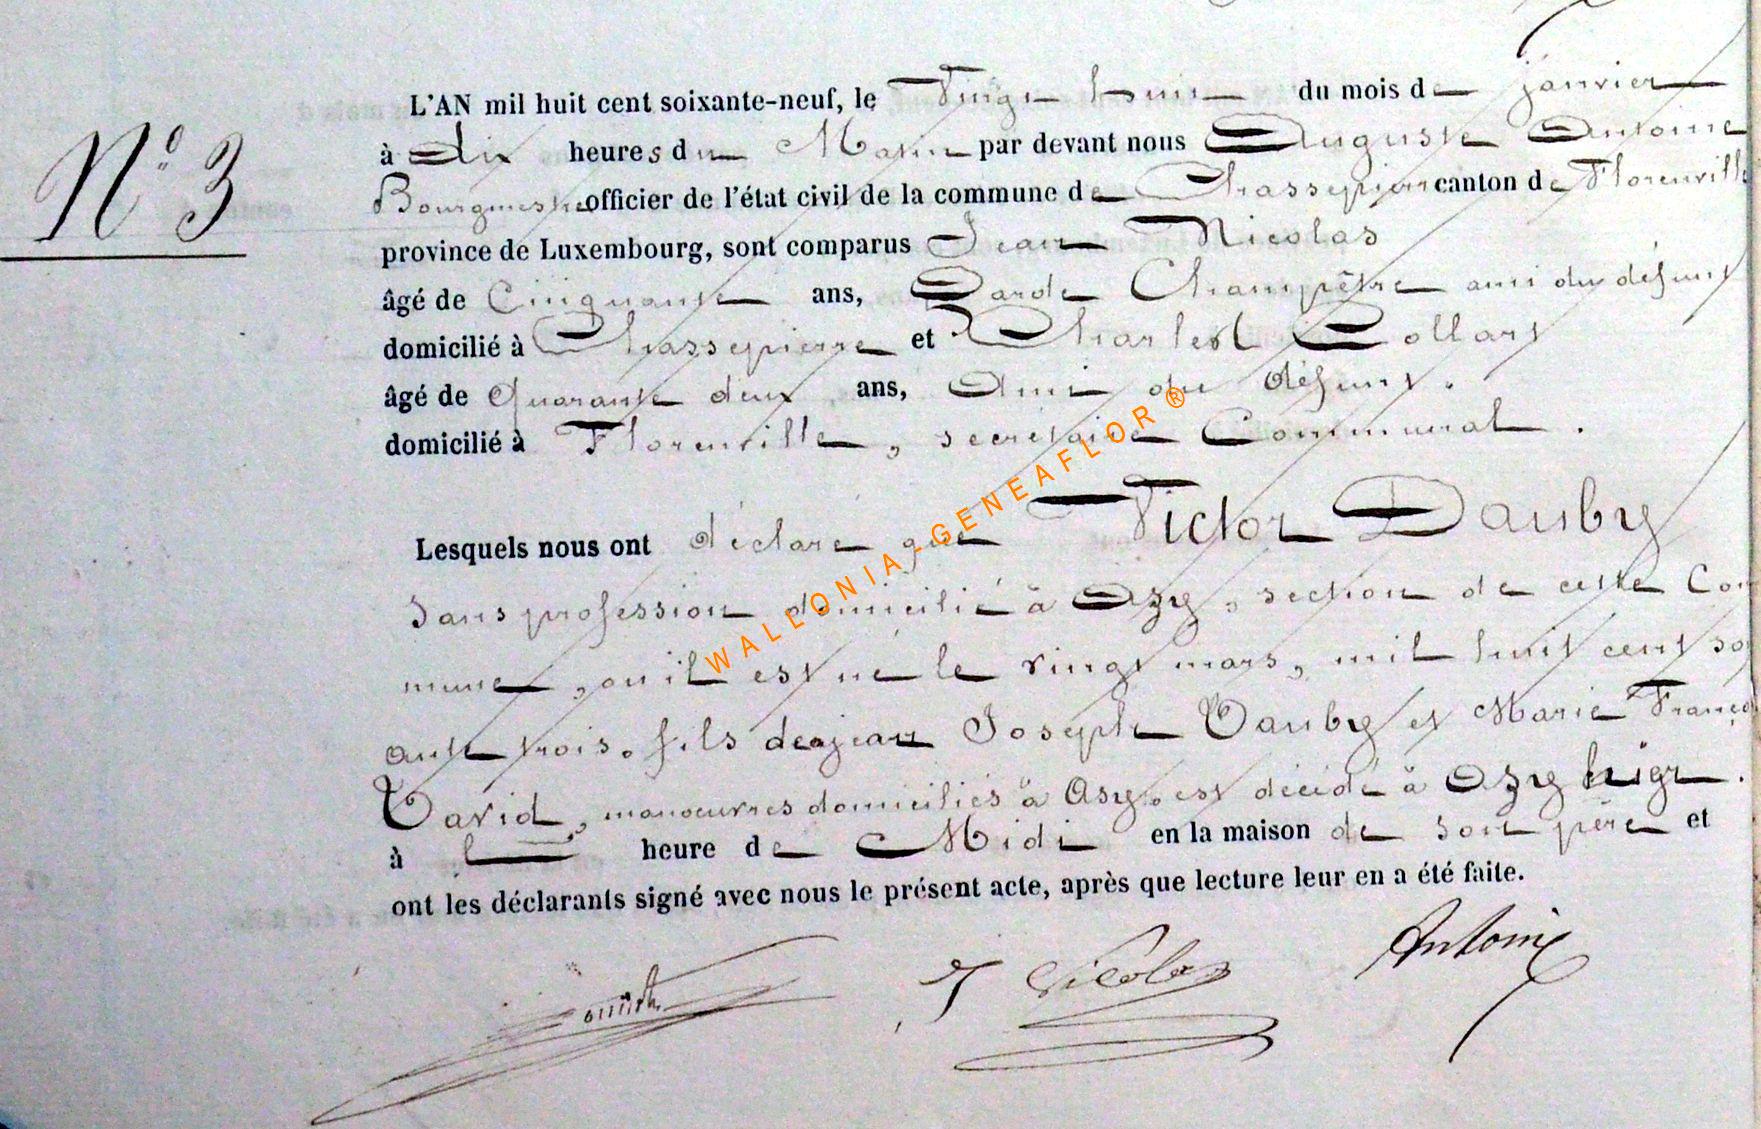 L'AN mil huit cent soixante-neuf, le Vingt huit du mois de janvier
N° 3
à dix heures du Matin par devant nous Auguste Antoine
Bourgmestre officier de l'état civil de la commune de Chassepierre canton de Florenville
province de Luxembourg, sont comparus Jean Nicolas
âgé de Cinquante ans, Garde Champêtre ami du défunt
domicilié à Chassepierre et Charles Collart
âgé de Quarante deux ans, Ami du défunt.
domicilié à Florenville, secrétaire Communal.
Lesquels nous ont déclaré que Victor Dauby
Sans profession domicilié à Azy, section de cette Com
mune, où il est né le vingt mars, mil huit cent soix
ante trois. fils de jean Joseph Dauby et Marie Franço
David, manoeuvres domiciliés à Azy. est décédé à Azy hier.
à heure de Midi en la maison de son père et
ont les déclarants signé avec nous le présent acte, après que lecture leur en a été faite.
J Nicolas Antoine
WALLONIA-GENEAFLOR ®